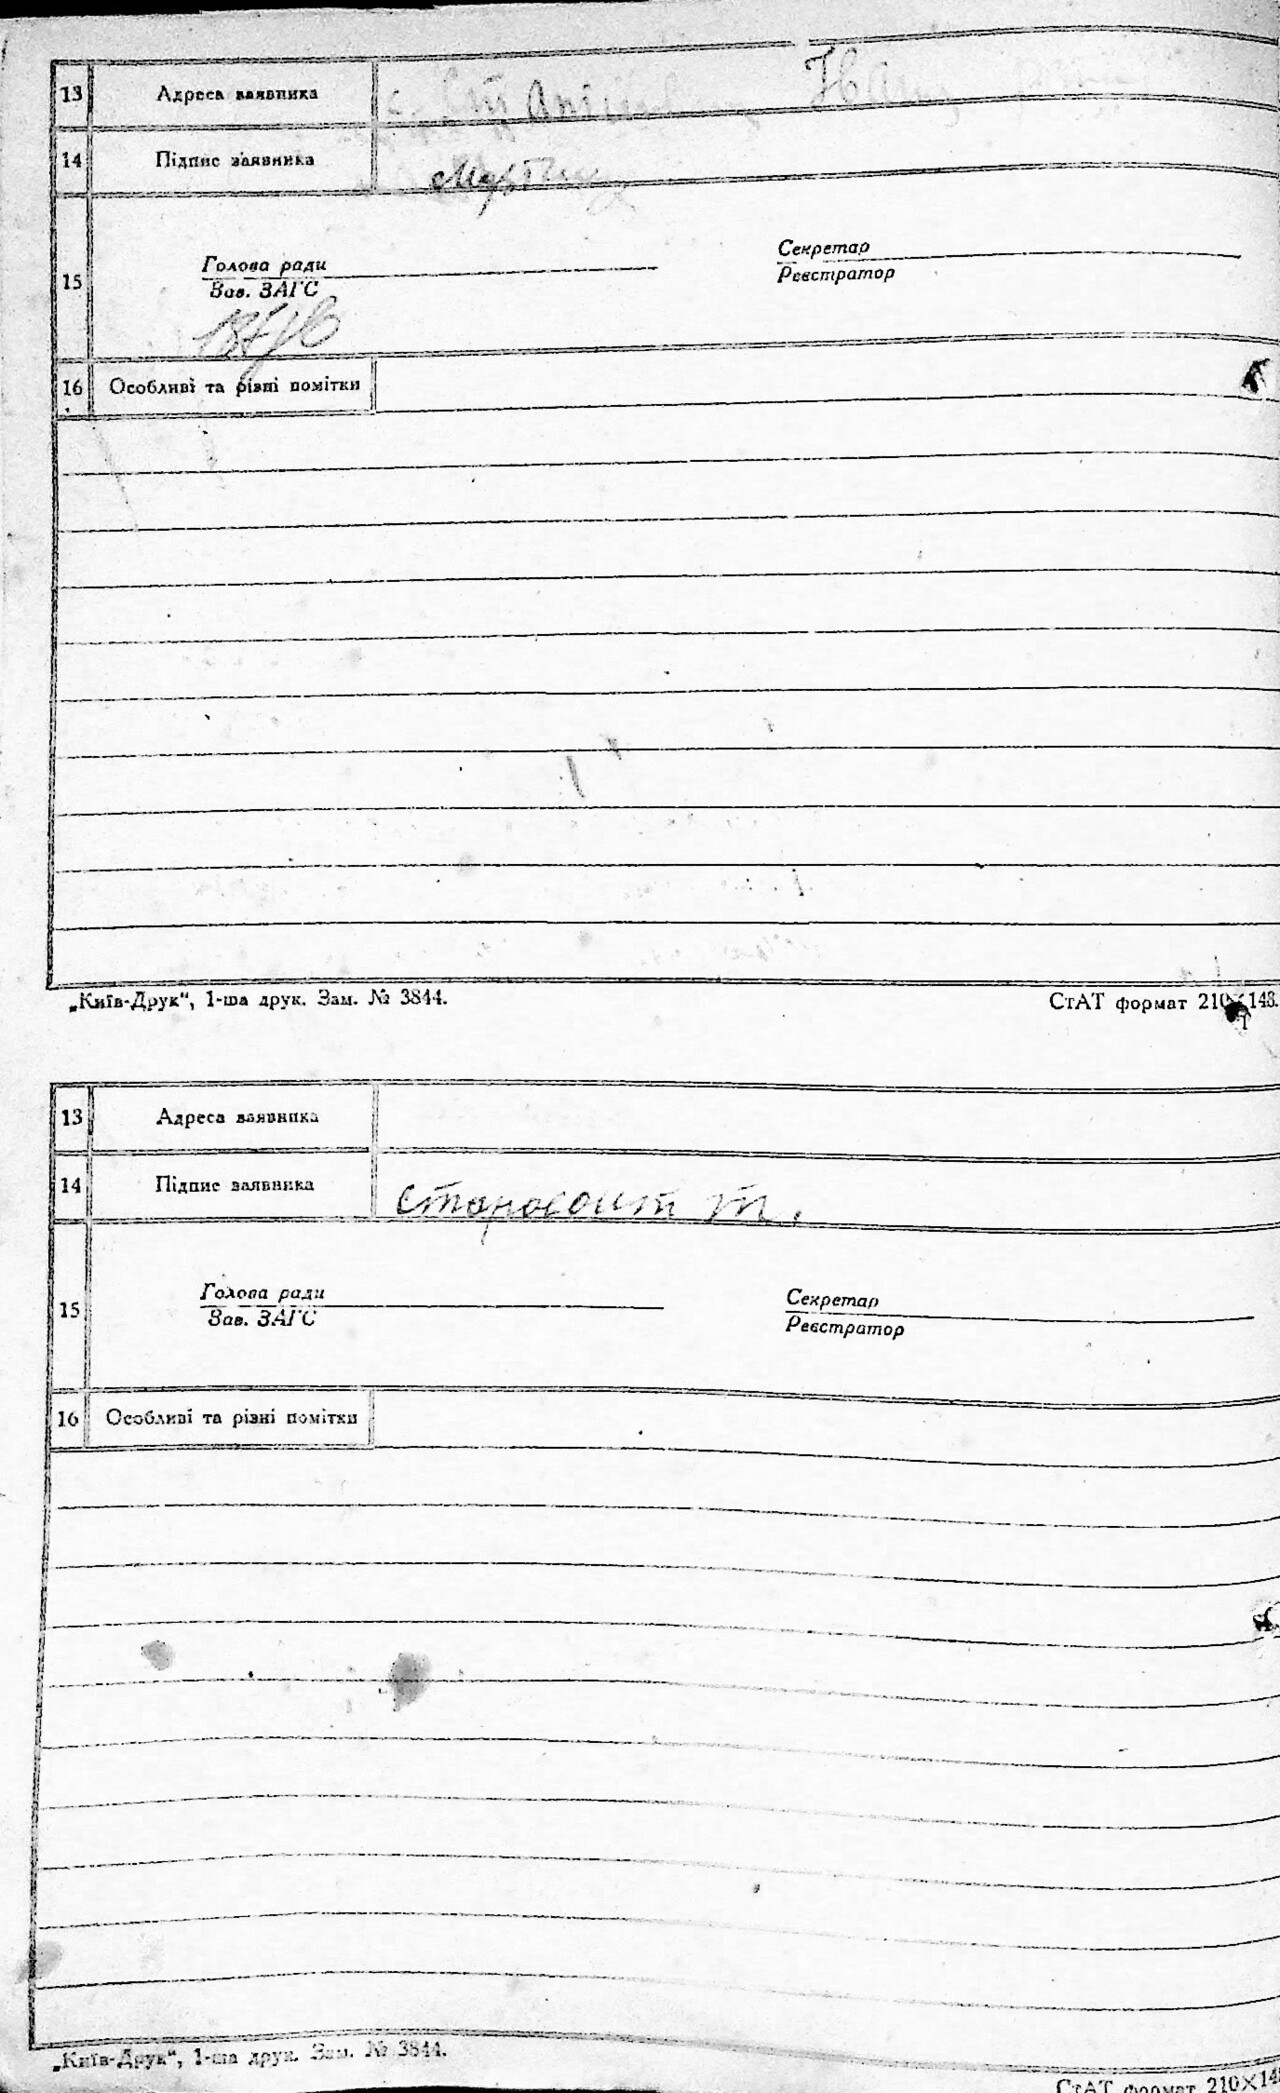 13 Адреса заявника
14 Підпис заявника
15 Голова ради Секретар
Зав. ЗАГС Реєстратор
16 Особливі та різні помітки
„Київ-Друк“, 1-ша друк. Зам. № 3844. СтАТ формат 210×148.
13 Адреса заявника
14 Підпис заявника Старосоит т.
15 Голова ради Секретар
Зав. ЗАГС Реєстратор
16 Особливі та різні помітки
„Київ-Друк“, 1-ша друк. Зам. № 3844. СтАТ формат 210×14